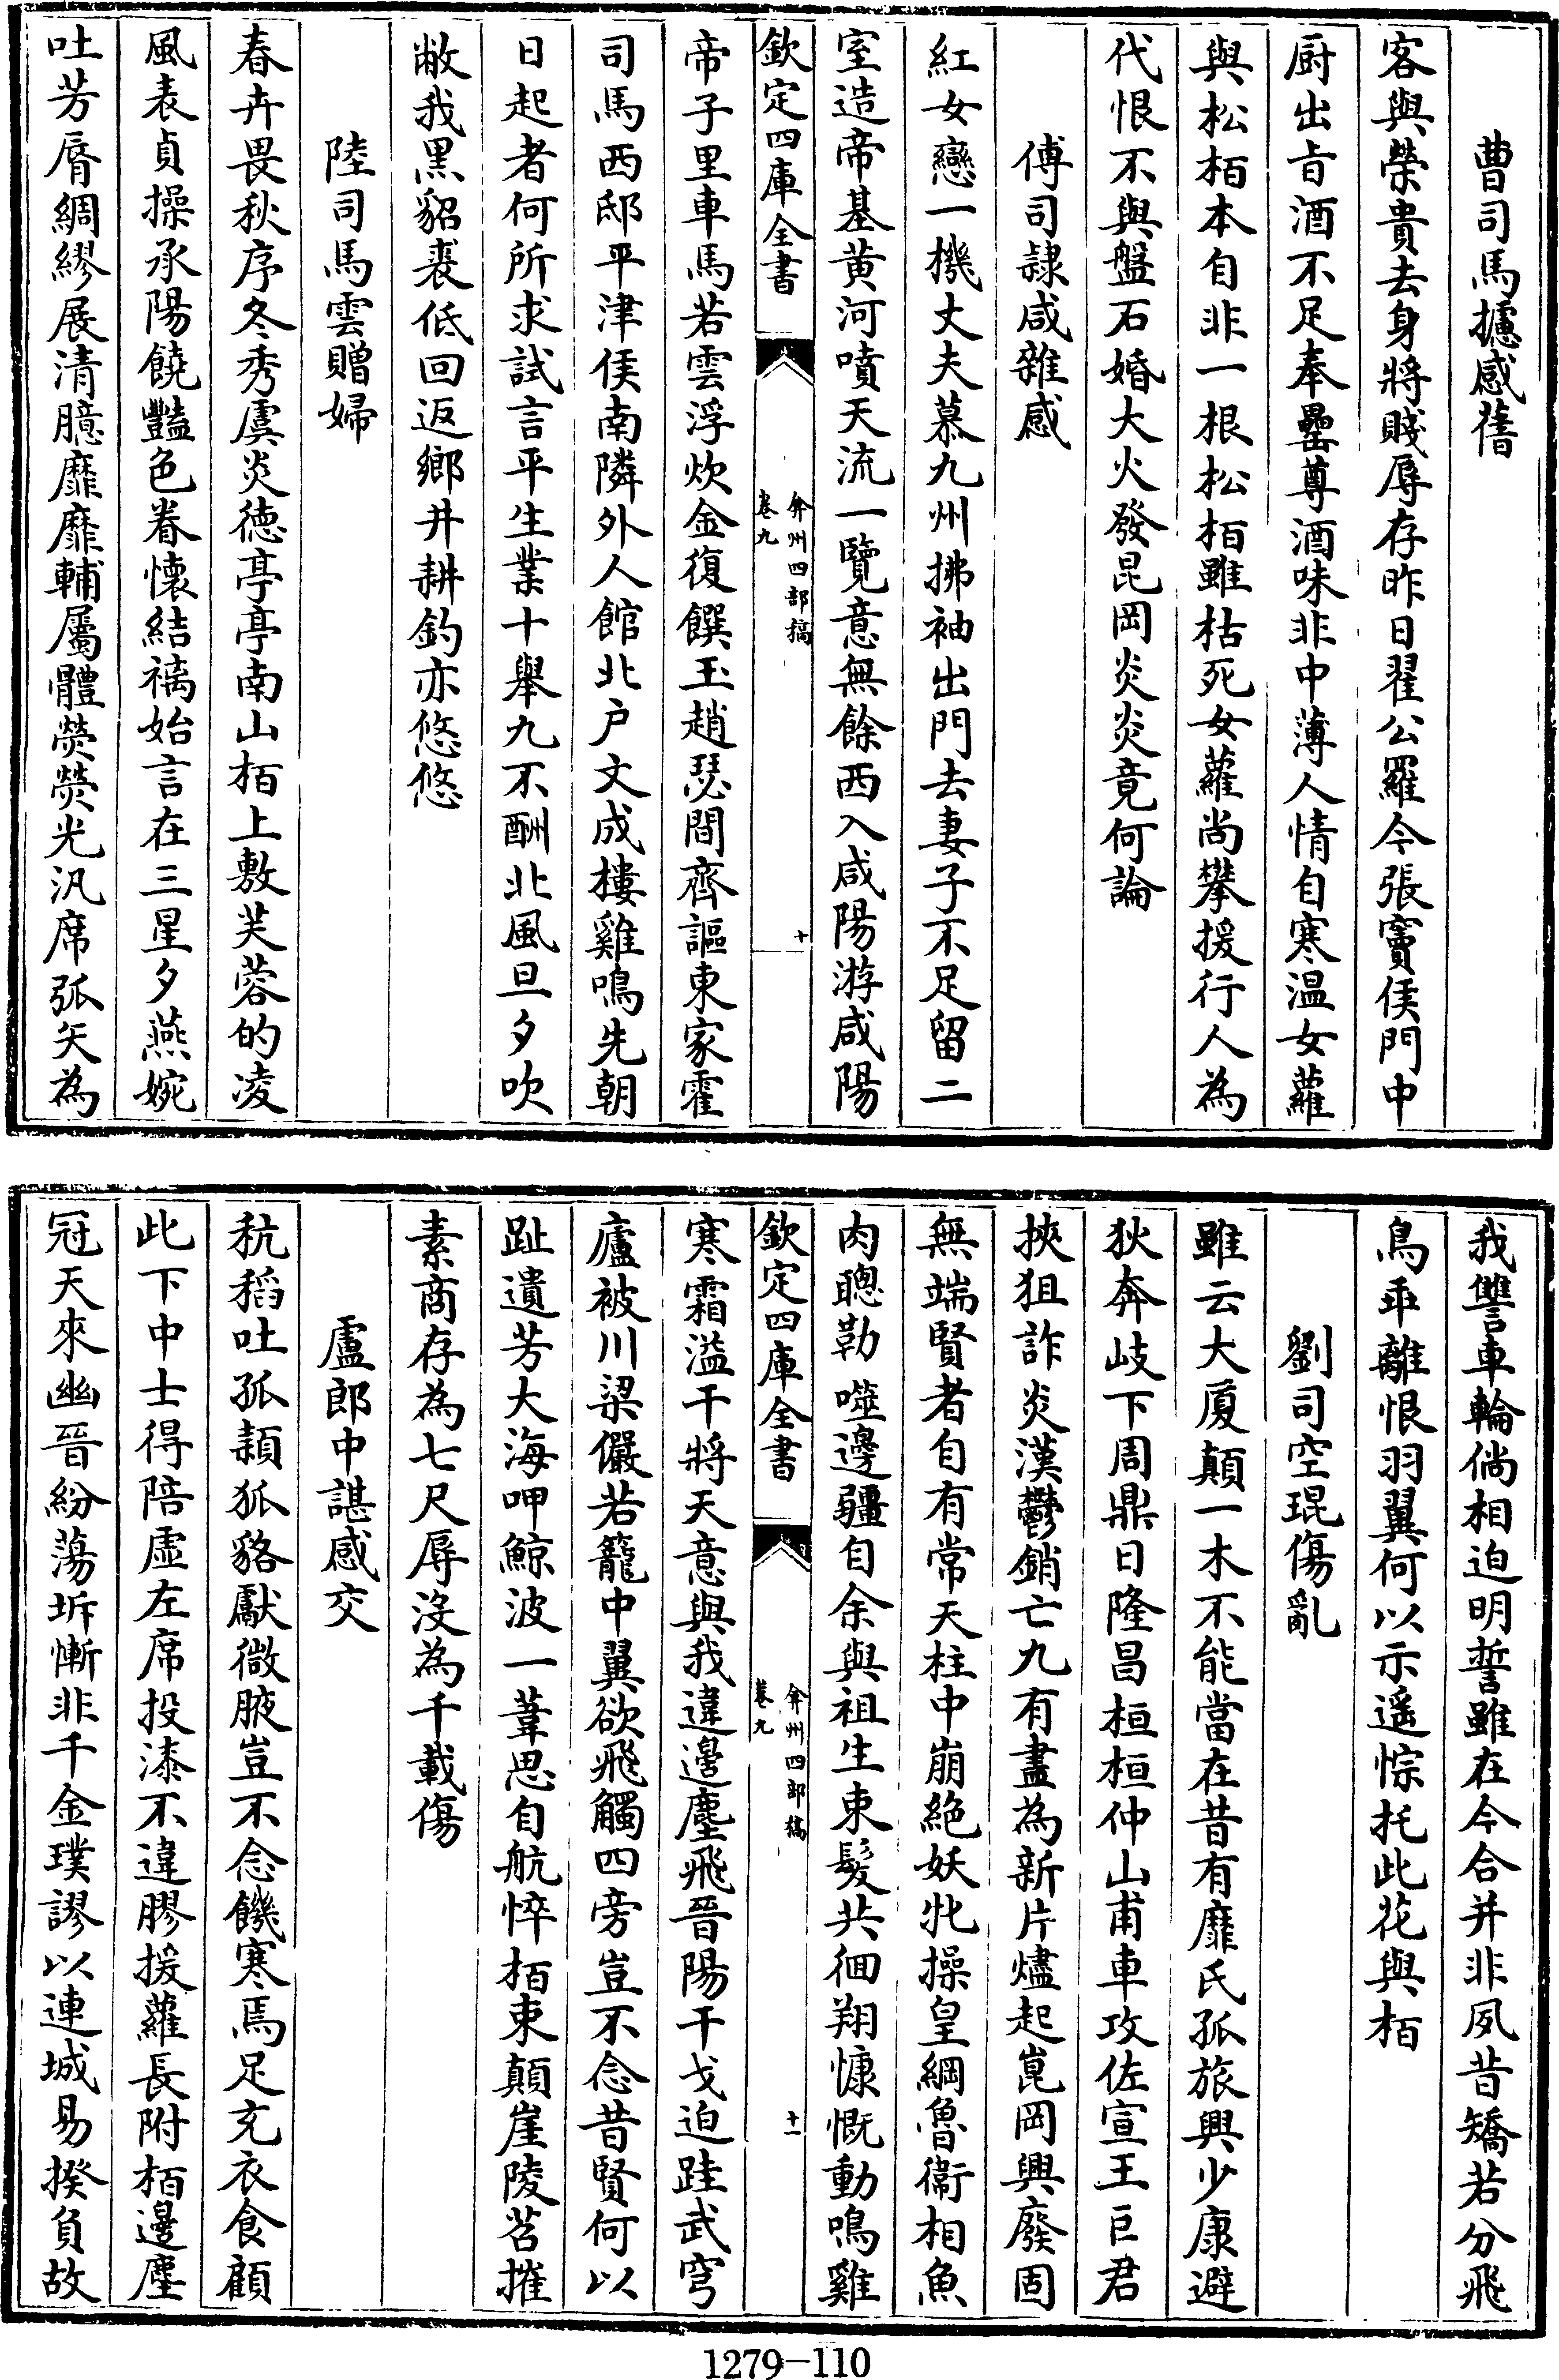 曹司馬攄感舊
客與榮貴去身將賤辱存昨日翟公羅今張竇侯門中
厨出㫖酒不足奉罍尊酒味非中薄人情自寒温女蘿
與松栢本自非一根松栢雖枯死女蘿尚攀援行人為
代恨不與盤石婚大火發昆岡炎炎竟何論
傅司隷咸雜感
紅女戀一機丈夫慕九州拂袖出門去妻子不足留二
室造帝基黄河噴天流一覽意無餘西入咸陽游咸陽
欽定四庫全書
弇州四部稿
卷九
十
帝子里車馬若雲浮炊金復饌玉趙瑟間齊謳東家霍
司馬西邸平津侯南隣外人館北户文成樓雞鳴先朝
日起者何所求試言平生業十舉九不酬北風旦夕吹
敝我黑貂裘低回返鄉井耕釣亦悠悠
陸司馬雲贈婦
春卉畏秋序冬秀虞炎徳亭亭南山栢上敷芙蓉的凌
風表貞操承陽饒豔色眷懷結褵始言在三星夕燕婉
吐芳脣綢繆展清臆靡靡輔屬體熒熒光汎席弧矢為
我讐車輪倘相迫明誓雖在今合并非夙昔矯若分飛
鳥乖離恨羽翼何以示遥悰托此花與栢
劉司空琨傷亂
雖云大厦顛一木不能當在昔有靡氏孤旅興少康避
狄奔岐下周鼎日隆昌桓桓仲山甫車攻佐宣王巨君
挾狙詐炎漢鬱銷亡九有盡為新片燼起崑岡興廢固
無端賢者自有常天柱中崩絶妖牝操皇綱魯衛相魚
肉聰勒噬邊疆自余與祖生束髪共徊翔慷慨動鳴雞
欽定四庫全書
弇州四部稿
卷九
十一
寒霜溢干將天意與我違邊塵飛晉陽干戈迫跬武穹
廬被川梁儼若籠中翼欲飛觸四旁豈不念昔賢何以
趾遺芳大海呷鯨波一葦思自航悴栢束顛崖陵苕摧
素商存為七尺辱沒為千載傷
盧郎中諶感交
秔稻吐孤潁狐貉獻微腋豈不念饑寒焉足充衣食顧
此下中士得陪虚左席投漆不違膠援蘿長附栢邊塵
冠天來幽晉紛蕩坼慚非千金璞謬以連城易揆負故
1279-110